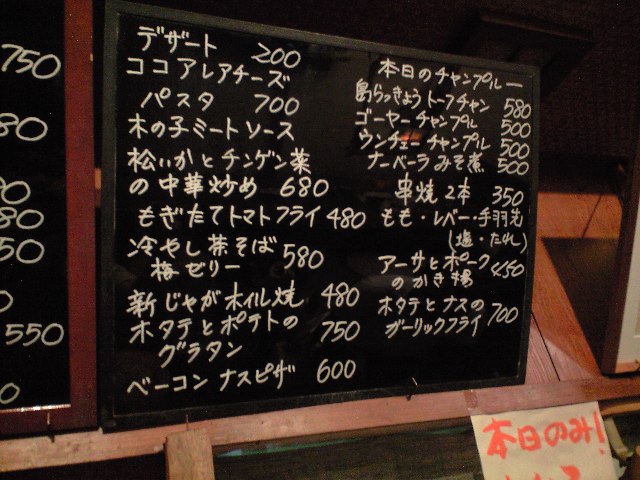 750
80
0
80
50
0
550
0
デザート 200
ココアレアチーズ
パスタ 700
木の子ミートソース
松いかとチンゲン菜
の中華炒め 680
もぎたてトマトフライ 480
冷やし茶そば 580
梅ゼリー
新じゃがホイル焼 480
ホタテとポテトの 750
グラタン
ベーコンナスピザ 600
本日のチャンプルー
島らっきょうトーフチャン 580
ゴーヤーチャンプル 500
ウンチェーチャンプル 500
ナーベーラみそ煮 500
串焼2本 350
もも・レバー・手羽先
(塩・たれ)
アーサとポーク 450
のかき揚
ホタテとナスの 700
ガーリックフライ
本日のみ!